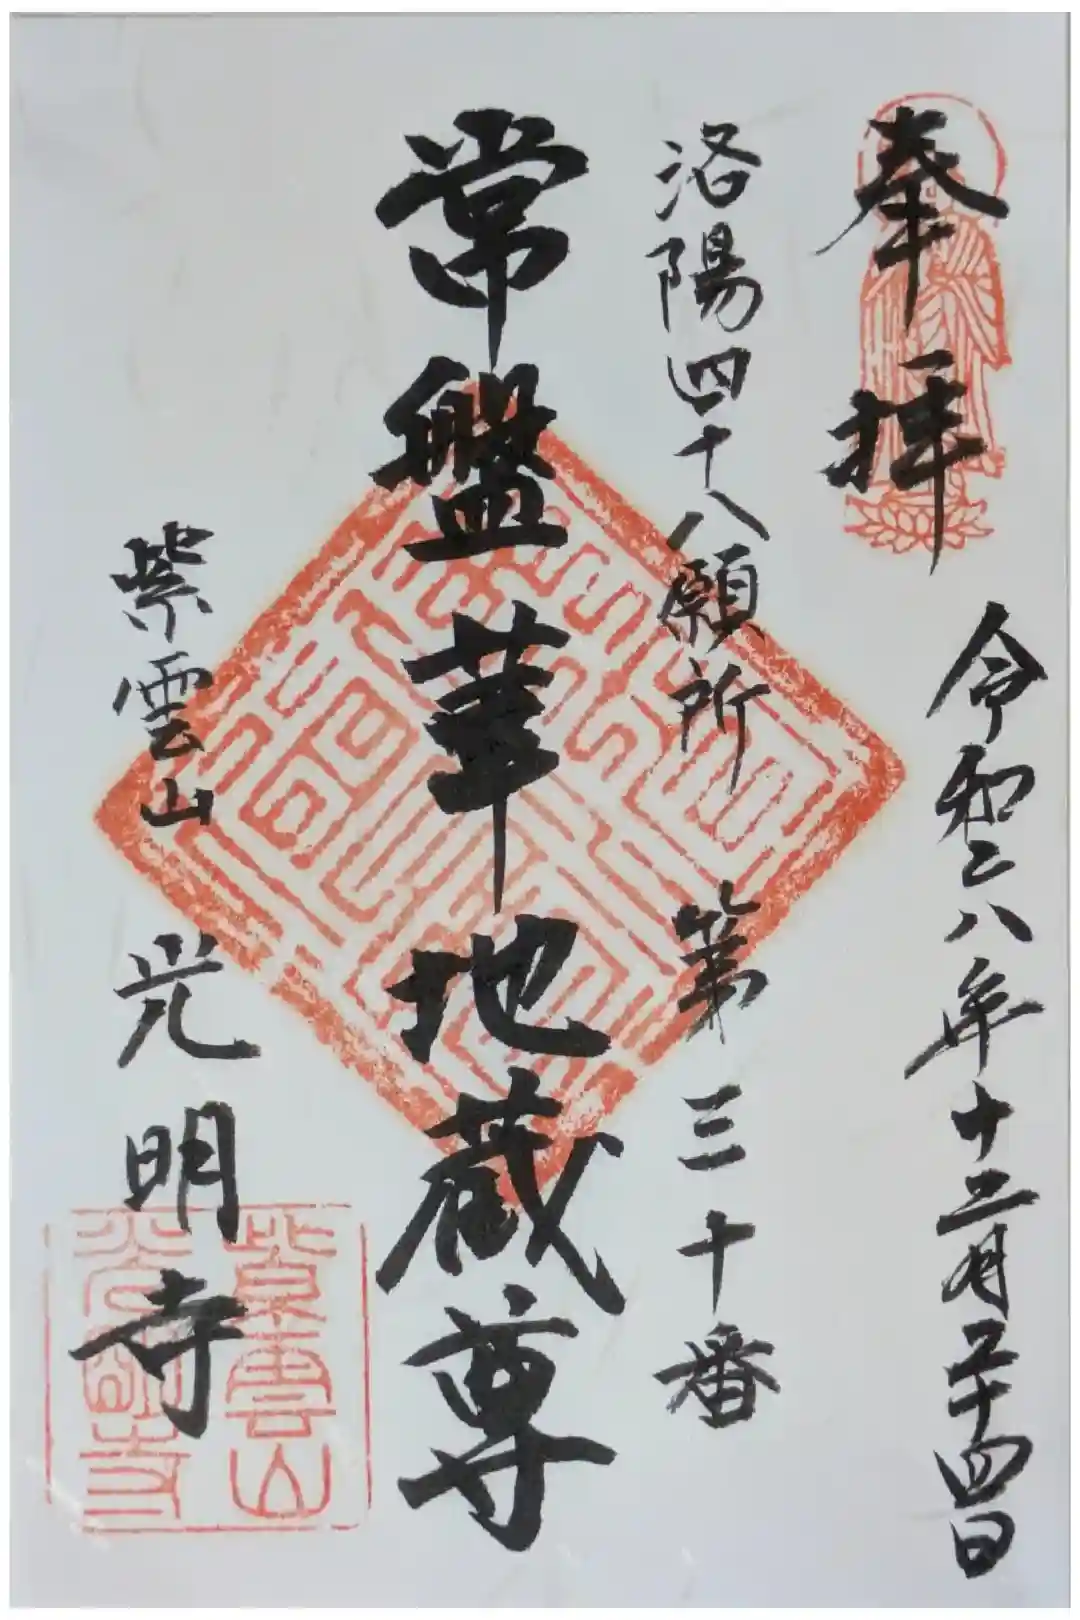 奉拝
令和六年十二月二十四日
洛陽四十八願所 第三十番
常盤華地蔵尊
紫雲山 光明寺
紫雲山
光明寺